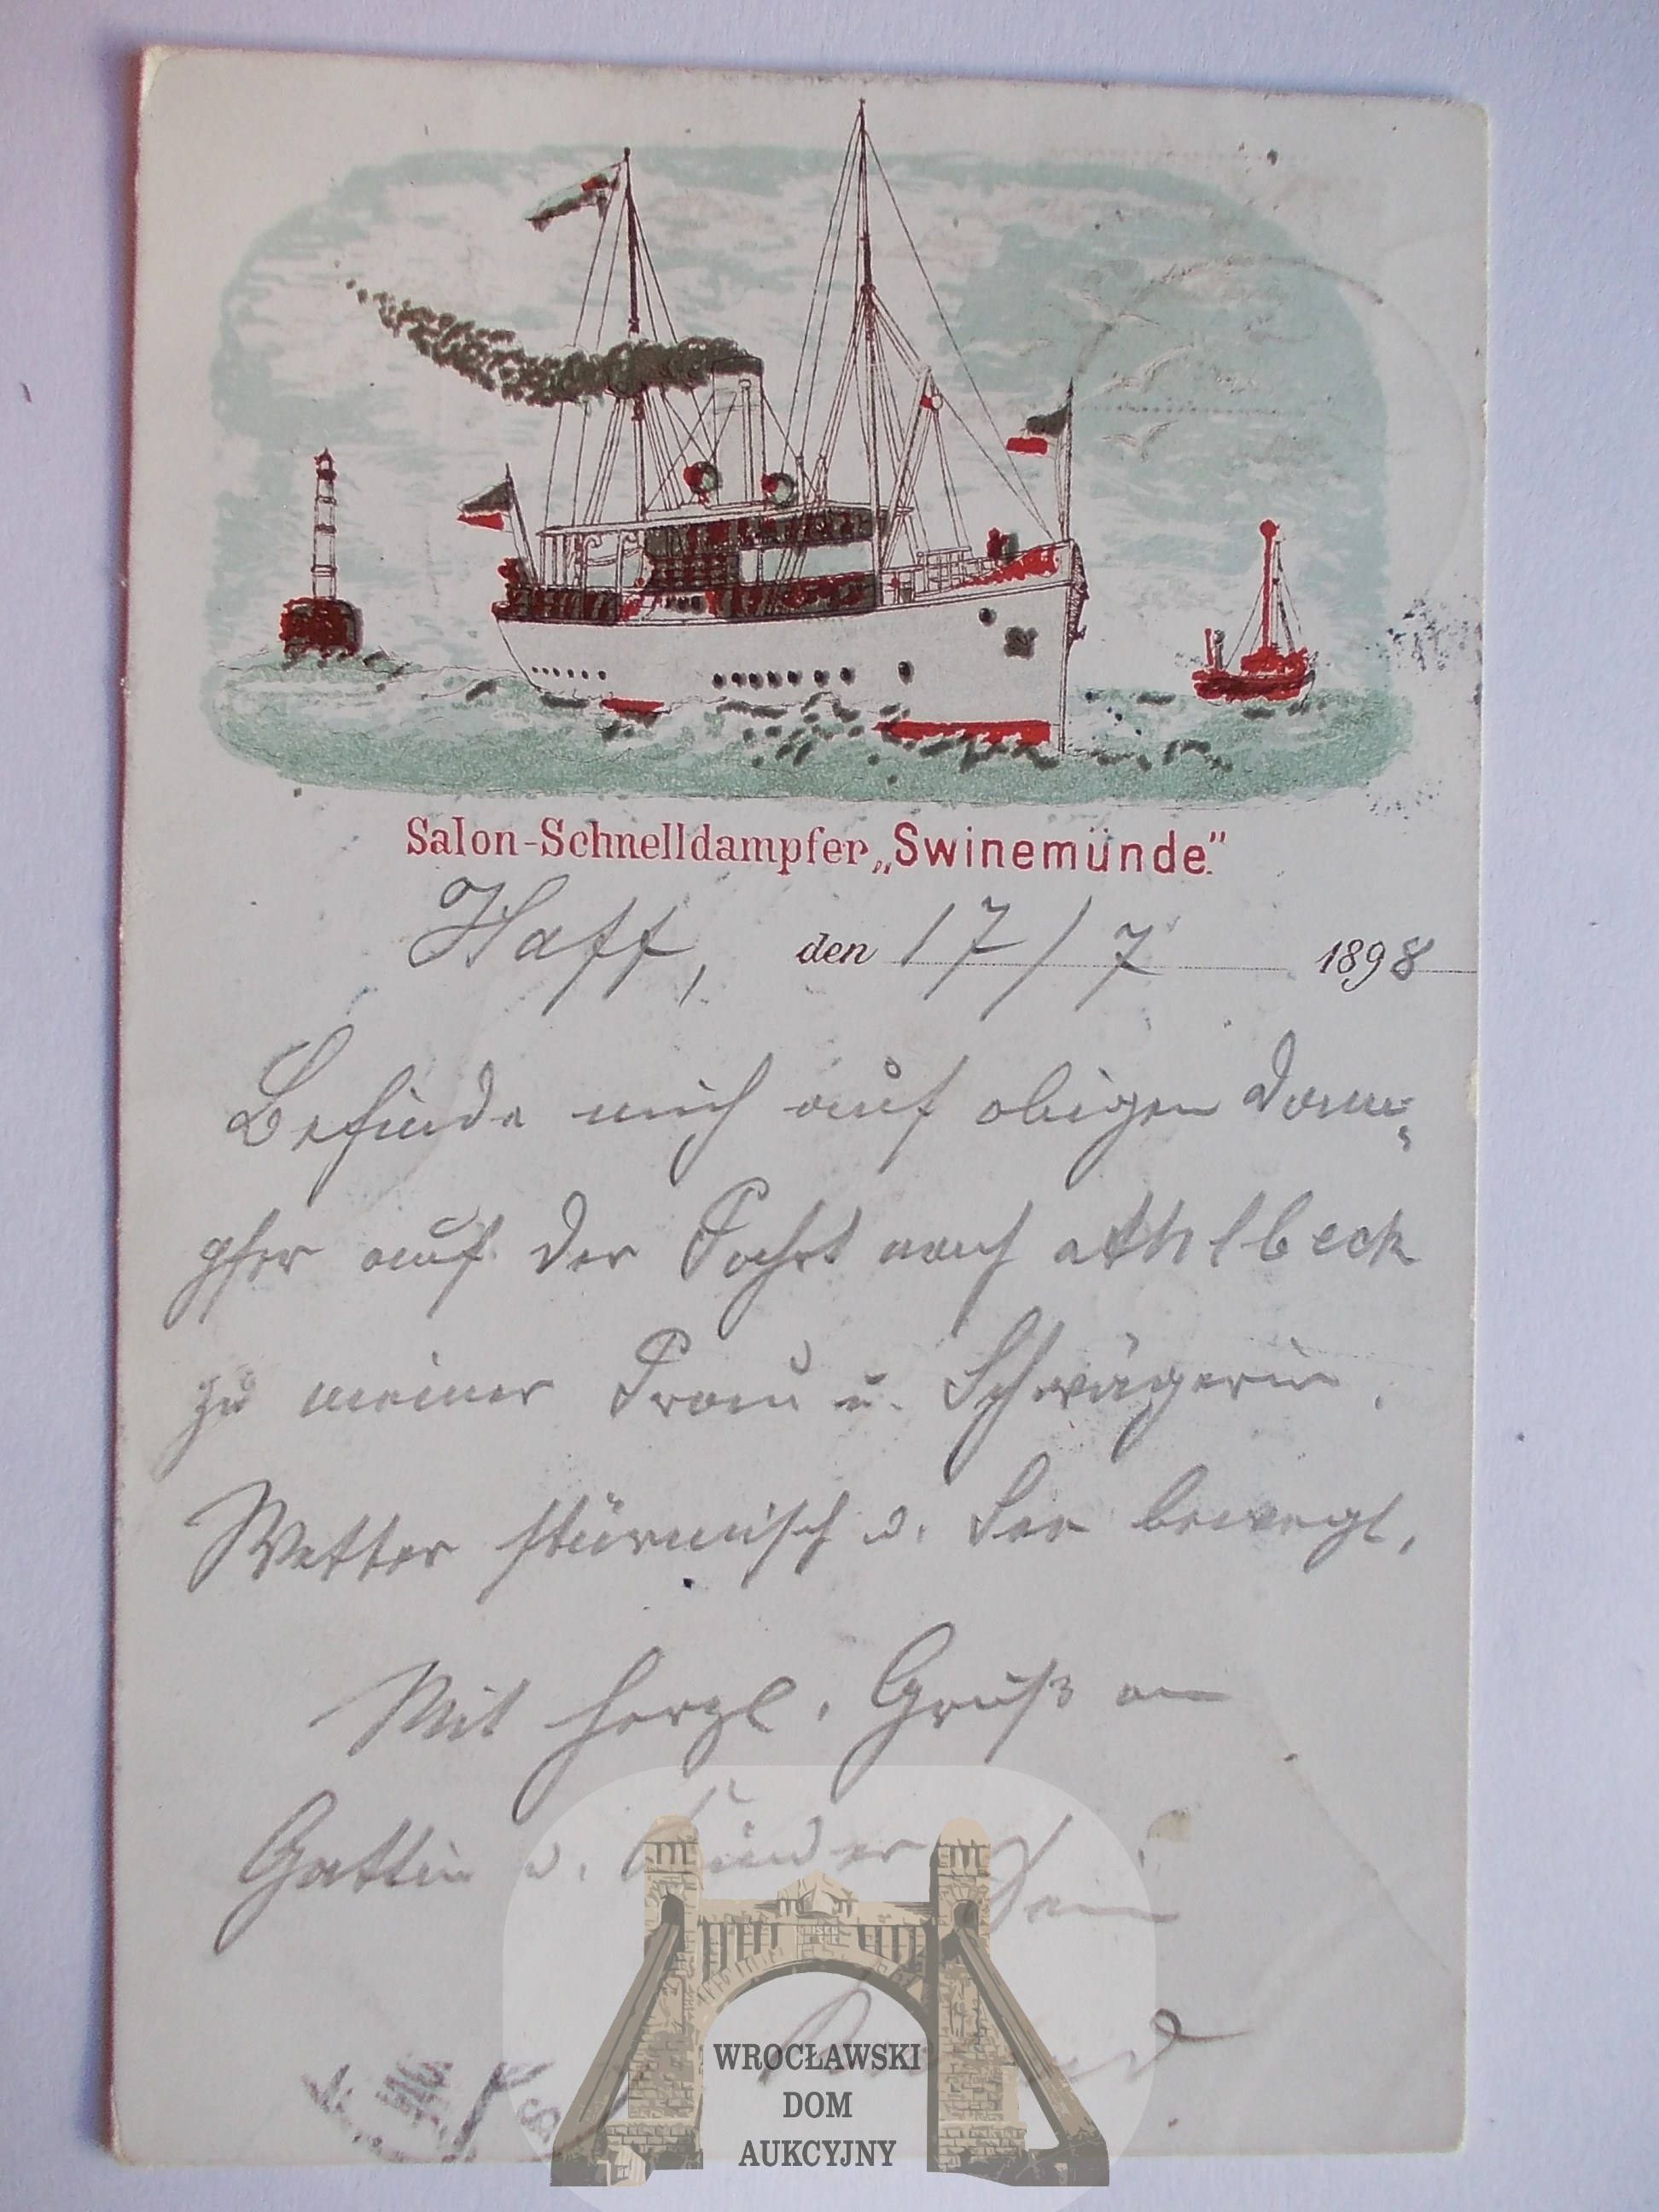 Salon-Schnelldampfer „Swinemünde."
Haff, den 17/7 1898
Befinde mich auf obigen Dam-
pfer auf der Fahrt nach Ahlbeck
zu meiner Frau u. Schwägerin.
Wetter stürmisch u. See bewegt.
Mit herzl. Gruß an
Gattin u. Kinder Dein
WROCŁAWSKI
DOM
AUKCYJNY